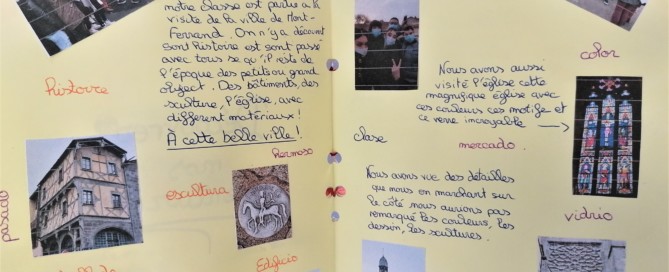 notre classe est partie a la
visite de la ville de Mont-
Ferrand. On n'y a découvert
son histoire est sont passé
avec tous se qu'il reste de
l'époque des petits ou grand
object. Des bâtiments, des
sculture, l'église, avec
different matériaux!
À cette belle ville!
historre
pasado
escultura
hermoso
Edificio
clase
color
Nous avons aussi
visité l'église cette
magnifique église avec
ces couleurs ces motifs et
ce verre incroyable →
mercado.
Nous avons vue des détailles
que nous en marchant sur
le côté nous aurions pas
remarqué les couleurs, les
dessin, les scultures.
vidrio